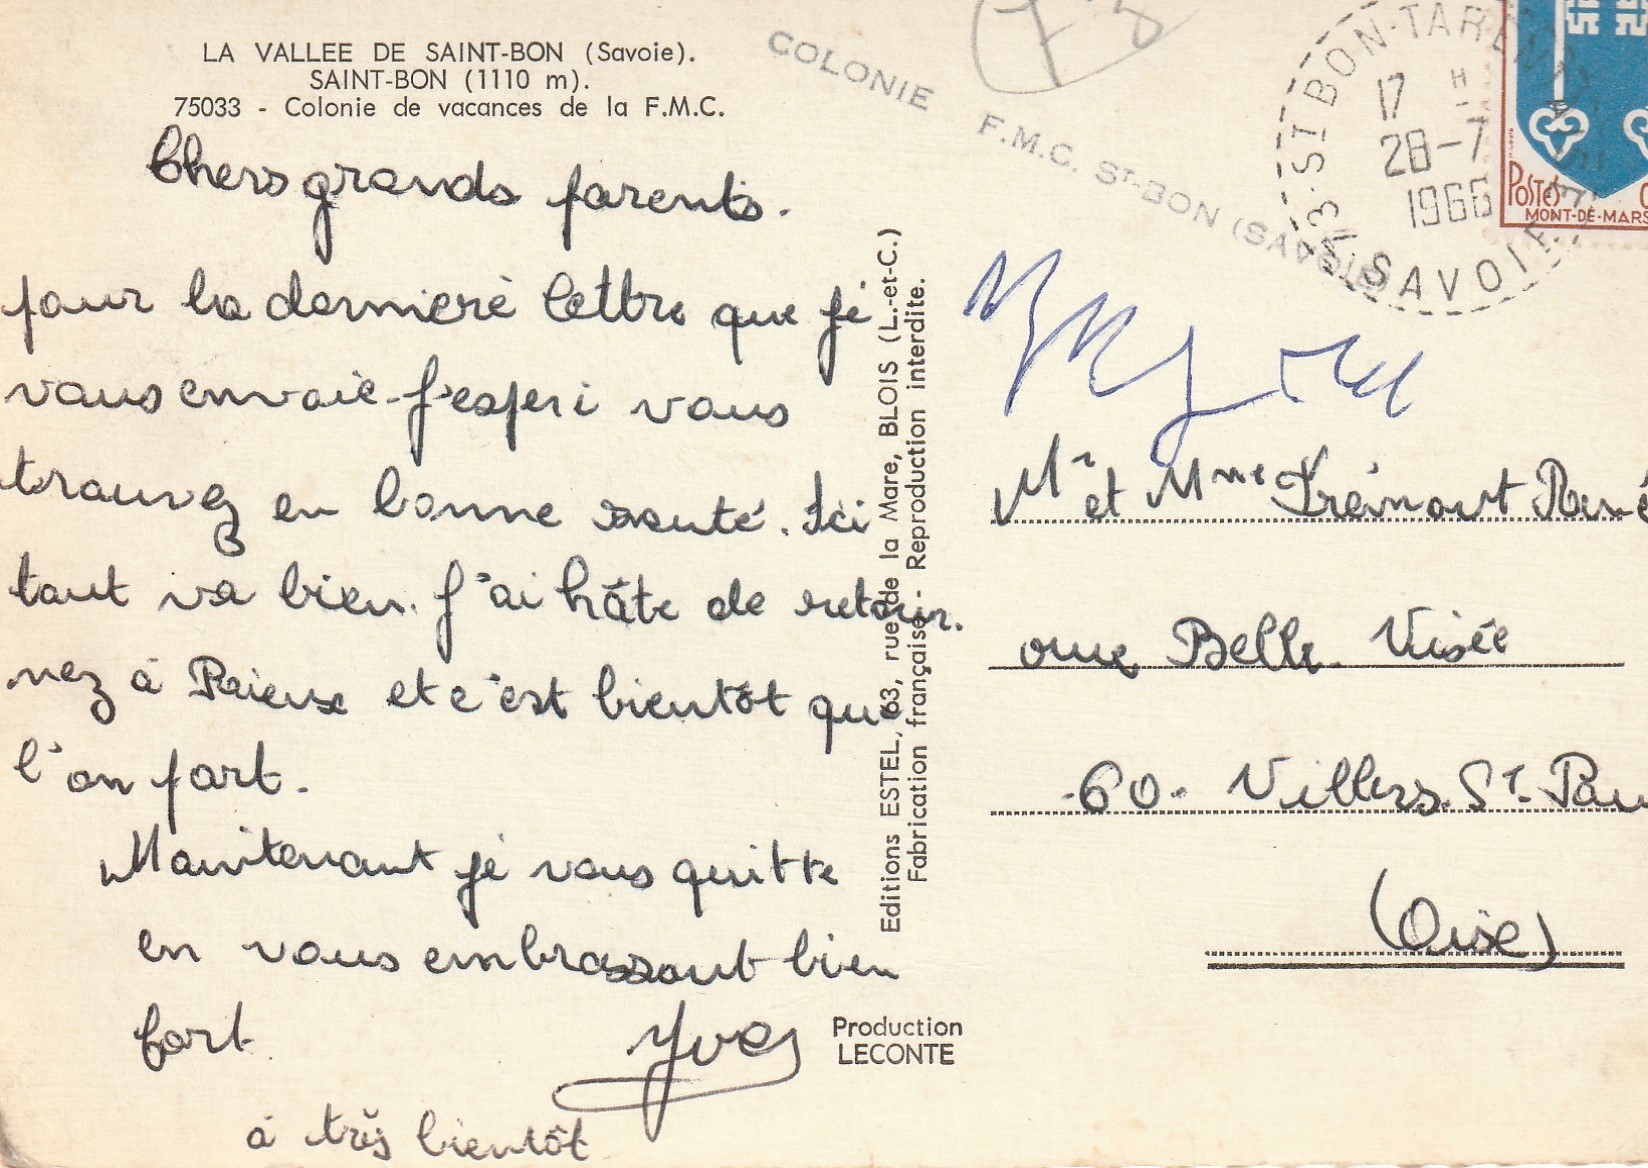 LA VALLEE DE SAINT-BON (Savoie).
SAINT-BON (1110 m).
75033 - Colonie de vacances de la F.M.C.
Chers grands parents.
pour la dernière lettre que je
vous envoie j'esperi vous
trouvez en bonne santé. Ici
tout va bien. J'ai hâte de retour.
nez à Rieux et c'est bientôt que
l'on part.
Maintenant je vous quitte
en vous embrassant bien
fort.
Yves
à très bientôt
Editions ESTEL, 63, rue de la Mare, BLOIS (L.-et-C.)
Fabrication française - Reproduction interdite.
Production
LECONTE
COLONIE F.M.C. ST-BON (SAVOIE)
ST BON-TARENTAISE
17 H
28-7
1966
73 SAVOIE
POSTES
MONT-DE-MARS
Mr et Mme Frémont René
rue Belle Visée
-60- Villers. St. Pau
(Oise)